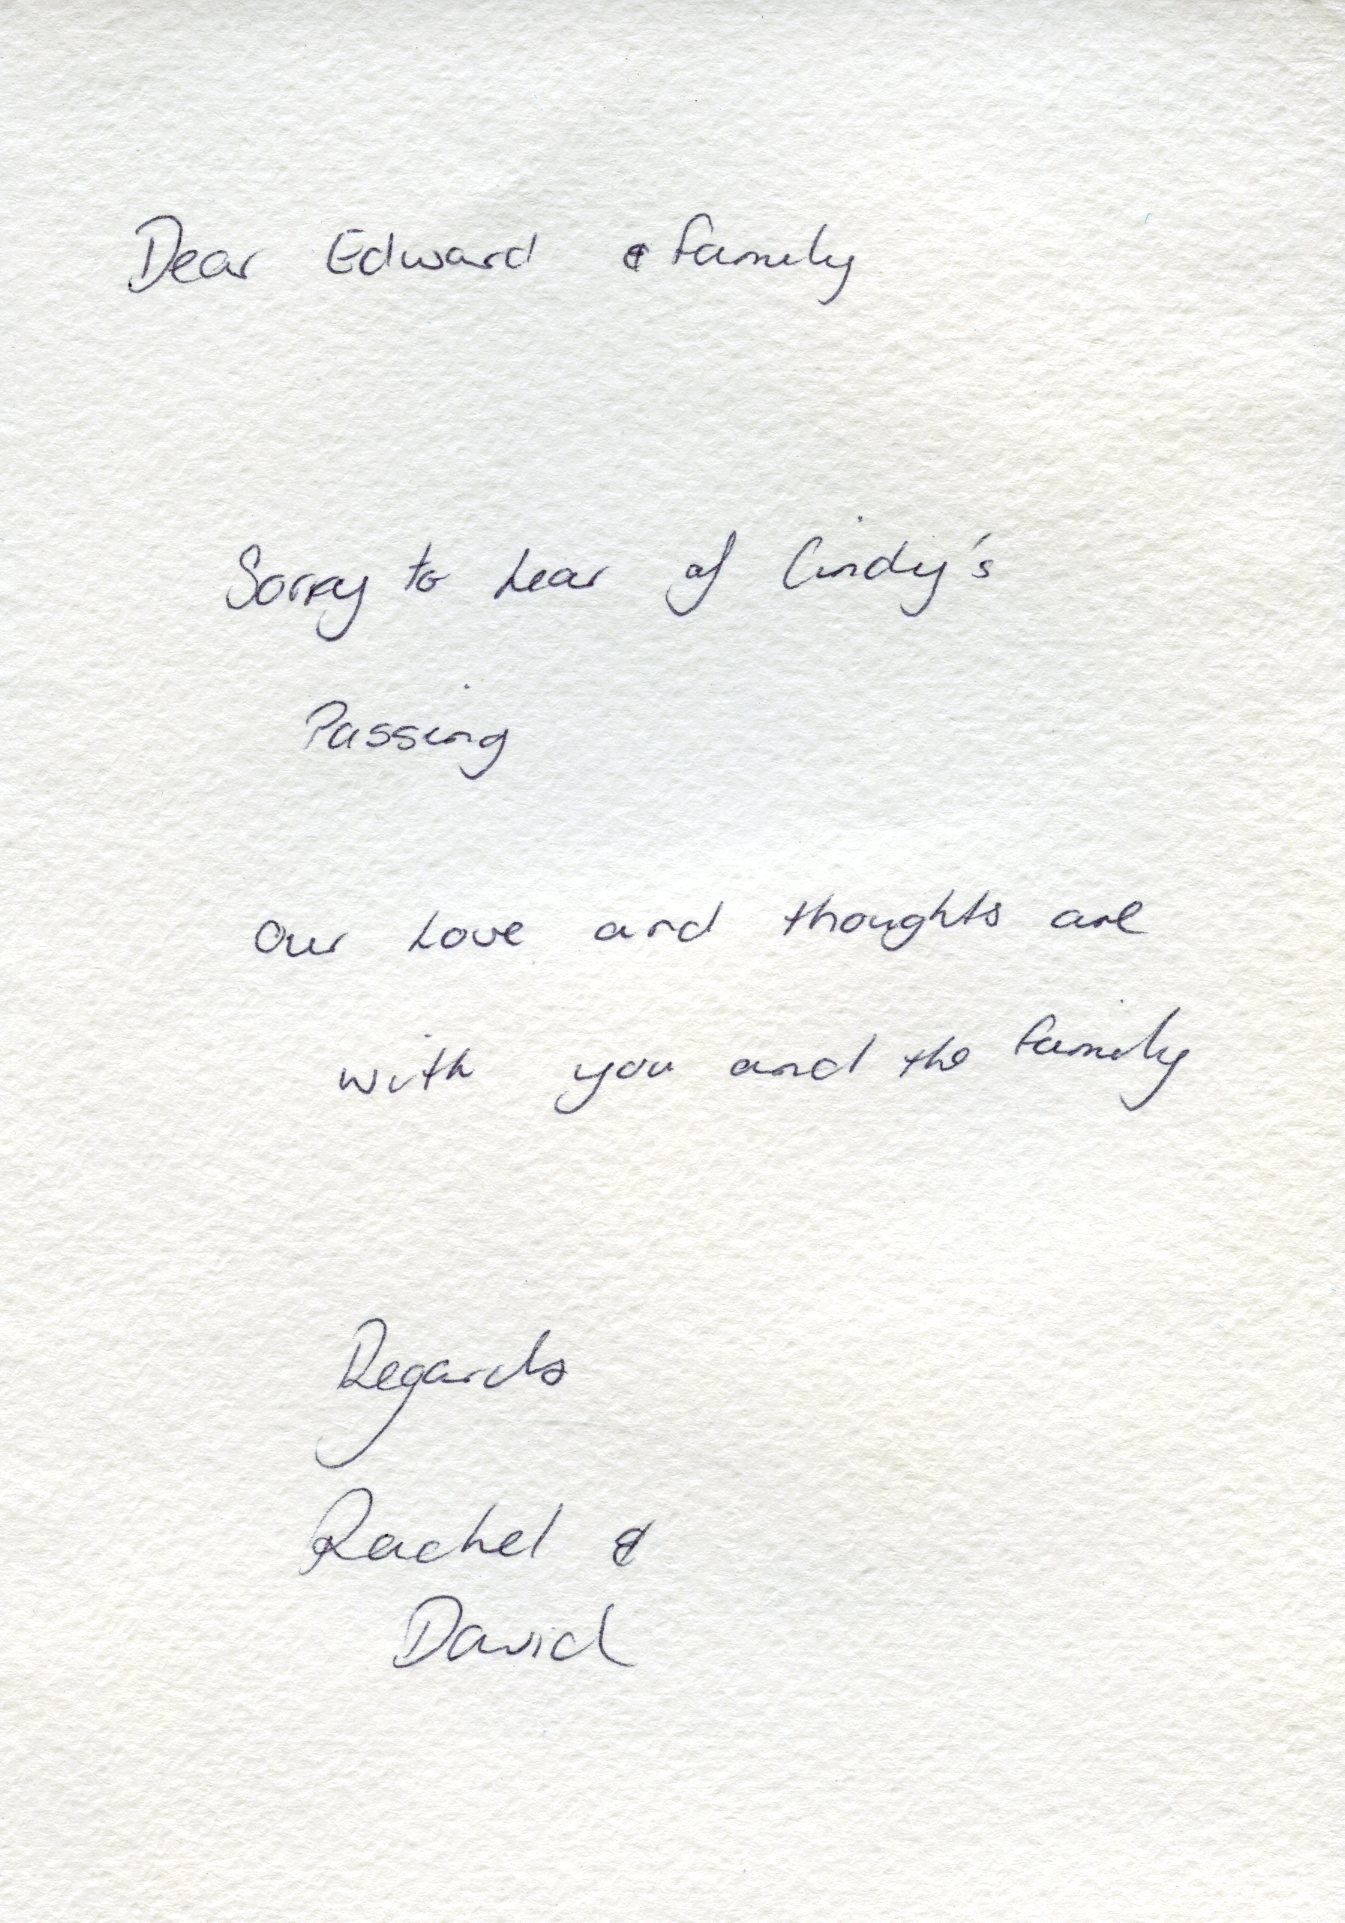 Dear Edward & family
Sorry to hear of Cindy's
Passing
Our Love and thoughts are
with you and the family
Regards
Rachel &
David